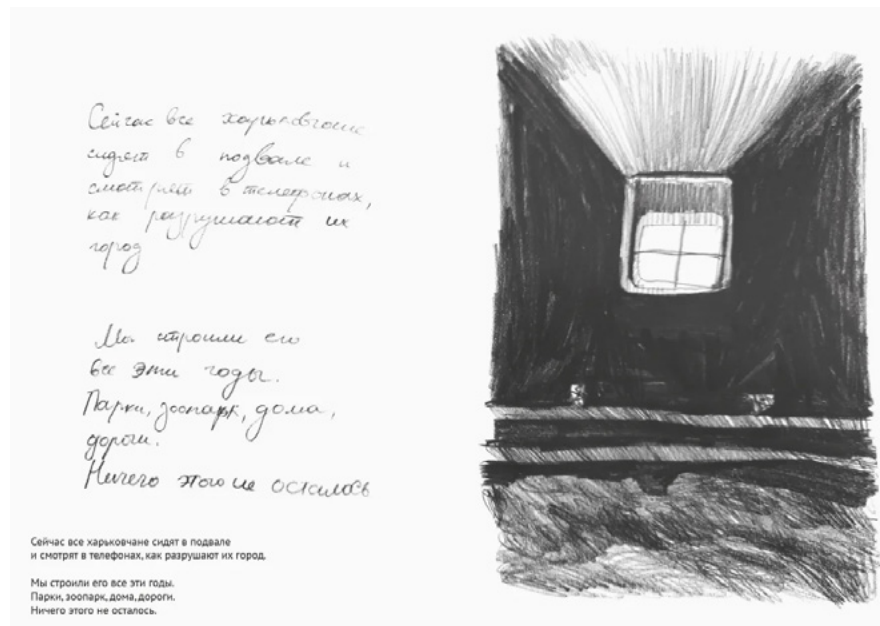 Сейчас все харьковчане
сидят в подвале и
смотрят в телефонах,
как разрушают их
город
Мы строили его
все эти годы.
Парки, зоопарк, дома,
дороги.
Ничего этого не осталось
Сейчас все харьковчане сидят в подвале
и смотрят в телефонах, как разрушают их город.
Мы строили его все эти годы.
Парки, зоопарк, дома, дороги.
Ничего этого не осталось.